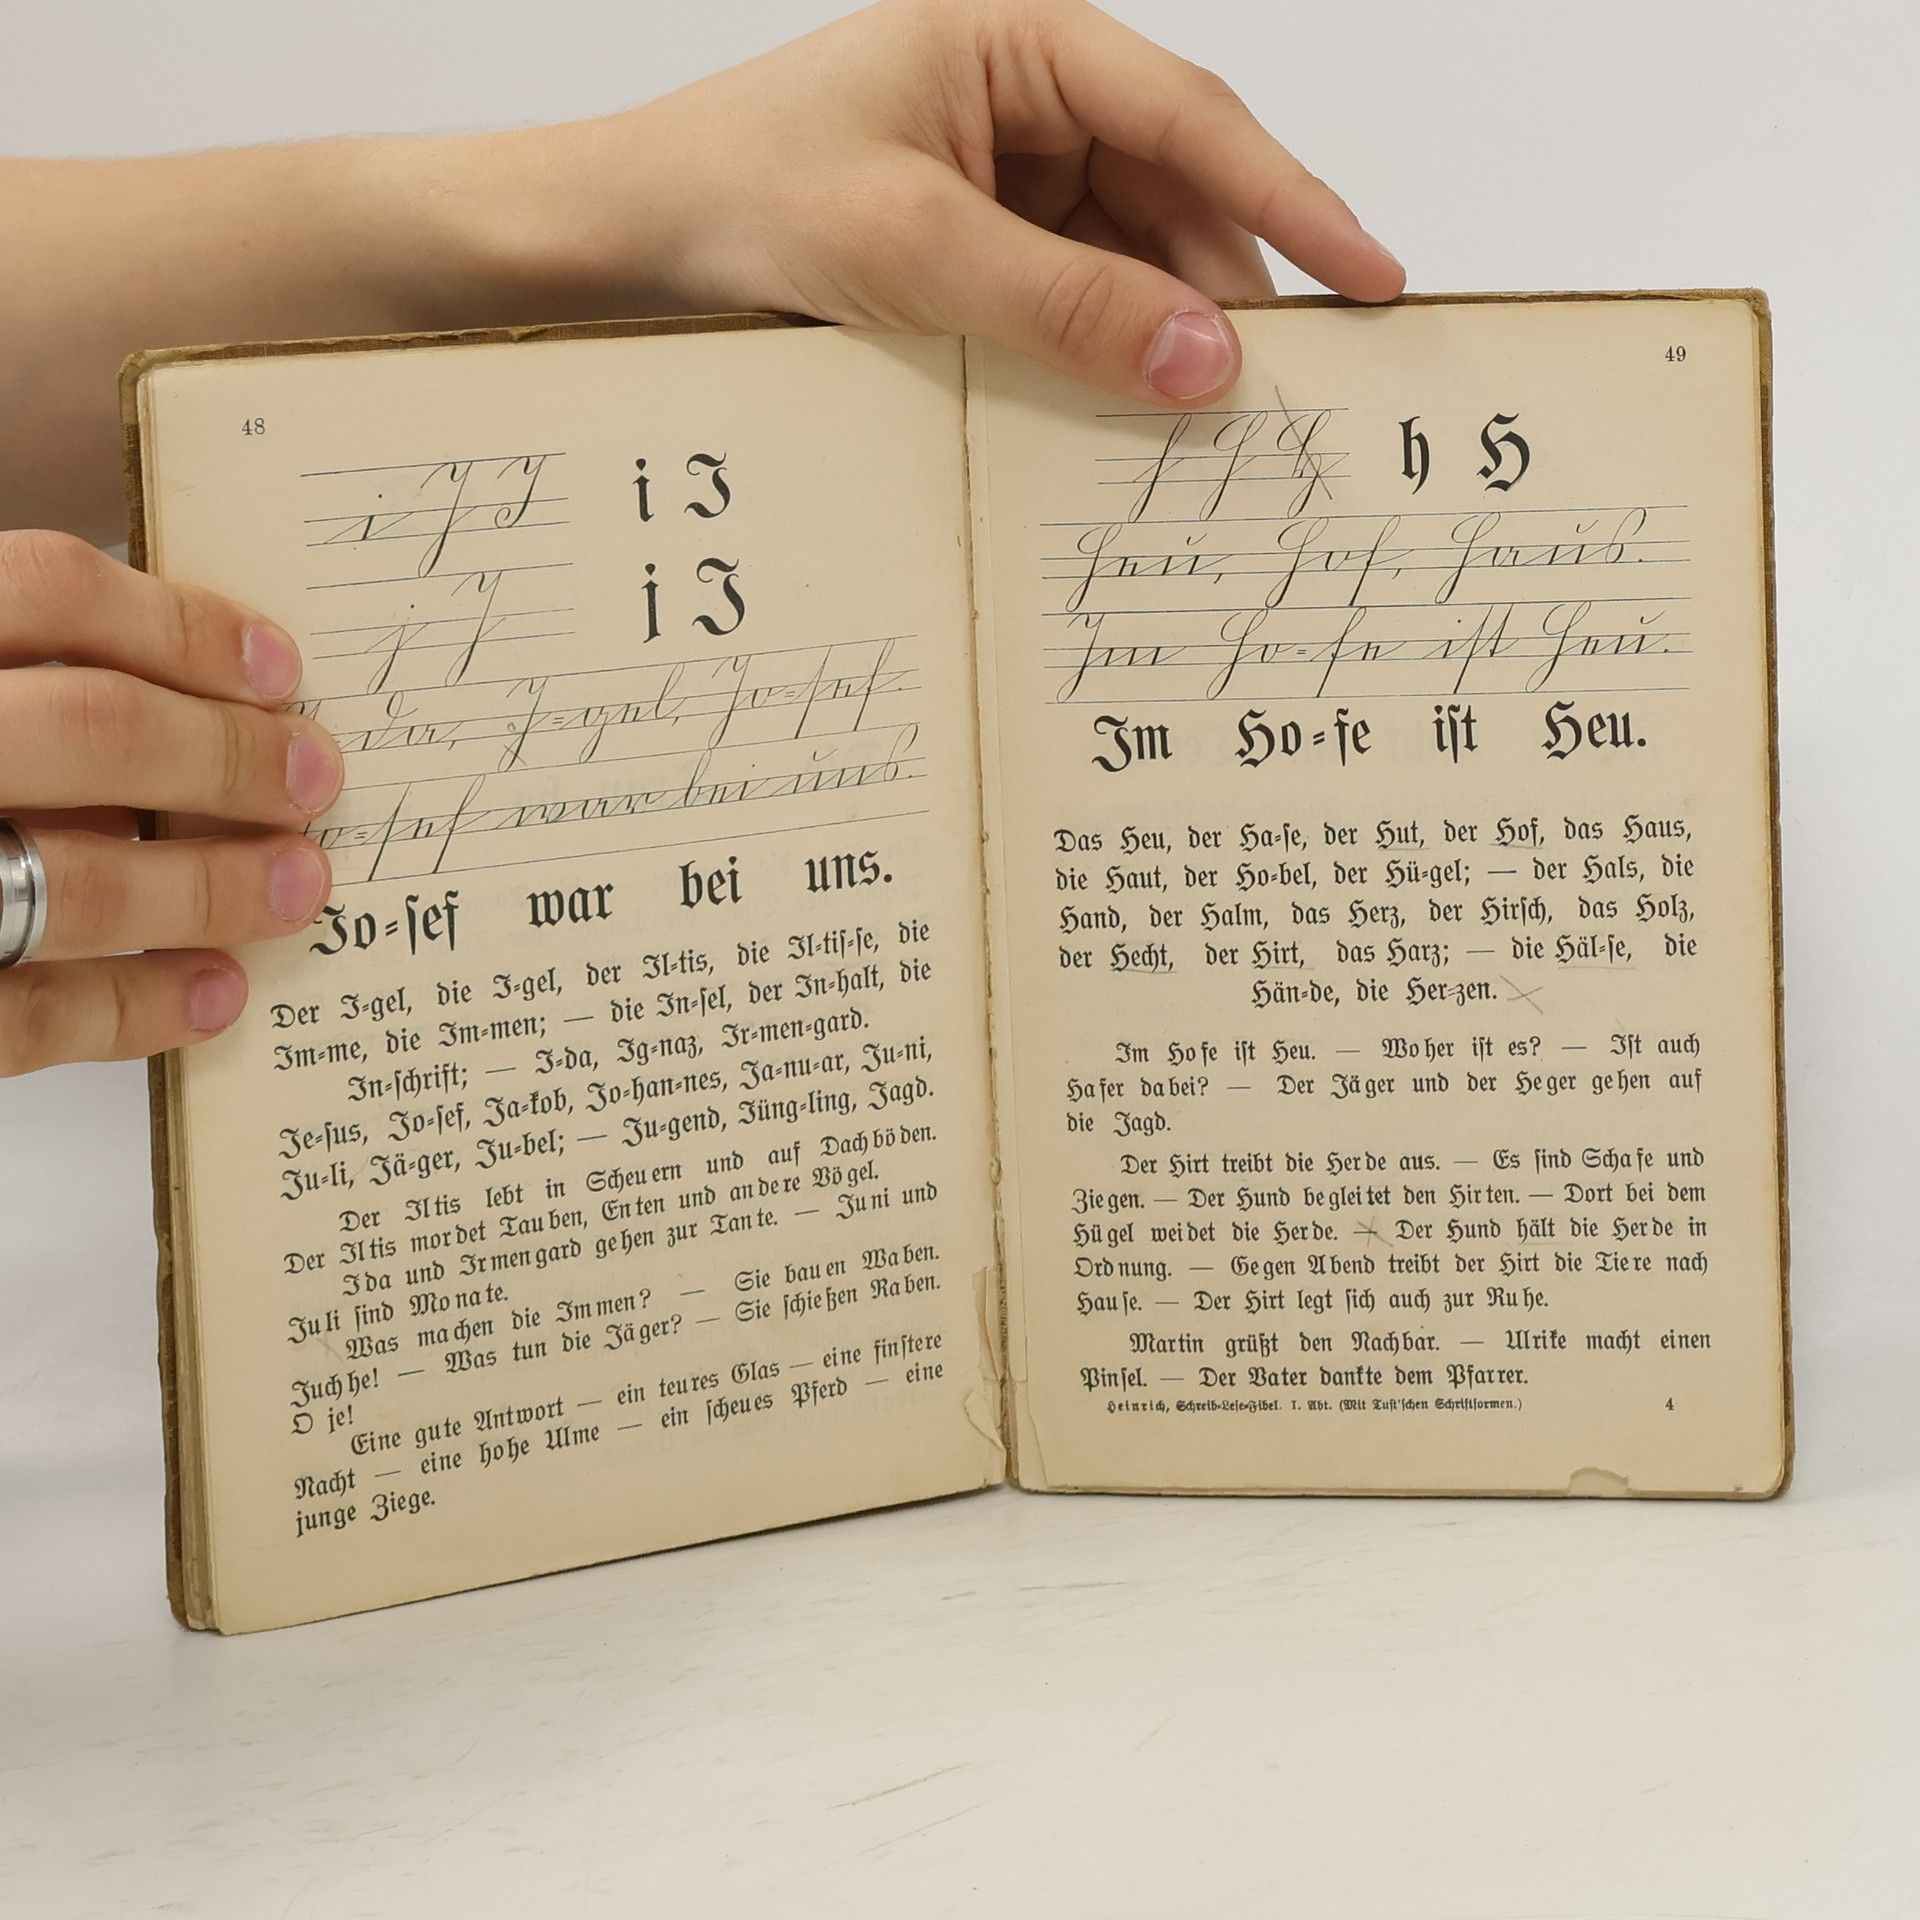 48
i J J i J
j J j J
Ida, J=gel, Jo=sef.
Jo=sef war bei uns.
Jo=ſef war bei uns.
Der I=gel, die I=gel, der Il=tis, die Il=tiſ=ſe, die
Im=me, die Im=men; — die In=ſel, der In=halt, die
In=ſchrift; — I=da, Ig=naz, Ir=men=gard.
Je=ſus, Jo=ſef, Ja=kob, Jo=han=nes, Ja=nu=ar, Ju=ni,
Ju=li, Jä=ger, Ju=bel; — Ju=gend, Jüng=ling, Jagd.
Der Iltis lebt in Scheuern und auf Dachböden.
Der Iltis mordet Tauben, Enten und andere Vögel.
Ida und Irmengard gehen zur Tante. — Juni und
Juli ſind Monate.
Was machen die Immen? — Sie bauen Waben.
Juchhe! — Was tun die Jäger? — Sie ſchießen Raben.
O je!
Eine gute Antwort — ein teures Glas — eine finſtere
Nacht — eine hohe Ulme — ein ſcheues Pferd — eine
junge Ziege.
49
h H H h H
Heu, Hof, Haus.
Im Ho=fe iſt Heu.
Im Ho=fe iſt Heu.
Das Heu, der Ha=ſe, der Hut, der Hof, das Haus,
die Haut, der Ho=bel, der Hü=gel; — der Hals, die
Hand, der Halm, das Herz, der Hirſch, das Holz,
der Hecht, der Hirt, das Harz; — die Häl=ſe, die
Hän=de, die Her=zen.
Im Hofe iſt Heu. — Woher iſt es? — Iſt auch
Hafer dabei? — Der Jäger und der Heger gehen auf
die Jagd.
Der Hirt treibt die Herde aus. — Es ſind Schafe und
Ziegen. — Der Hund begleitet den Hirten. — Dort bei dem
Hügel weidet die Herde. — Der Hund hält die Herde in
Ordnung. — Gegen Abend treibt der Hirt die Tiere nach
Hauſe. — Der Hirt legt ſich auch zur Ruhe.
Martin grüßt den Nachbar. — Ulrike macht einen
Pinſel. — Der Vater dankte dem Pfarrer.
Heinrich, Schreib=Leſe=Fibel. I. Abt. (Mit Tuſt'ſchen Schriftformen.) 4